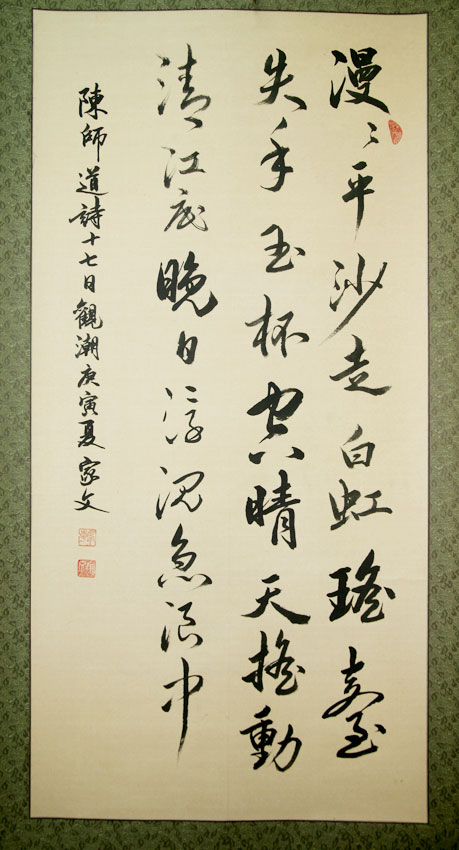 漫〻平沙走白虹瑤臺
失手玉杯空晴天搖動
清江底晚日浮沉急浪中
陳師道詩十七日觀潮庚寅夏家文